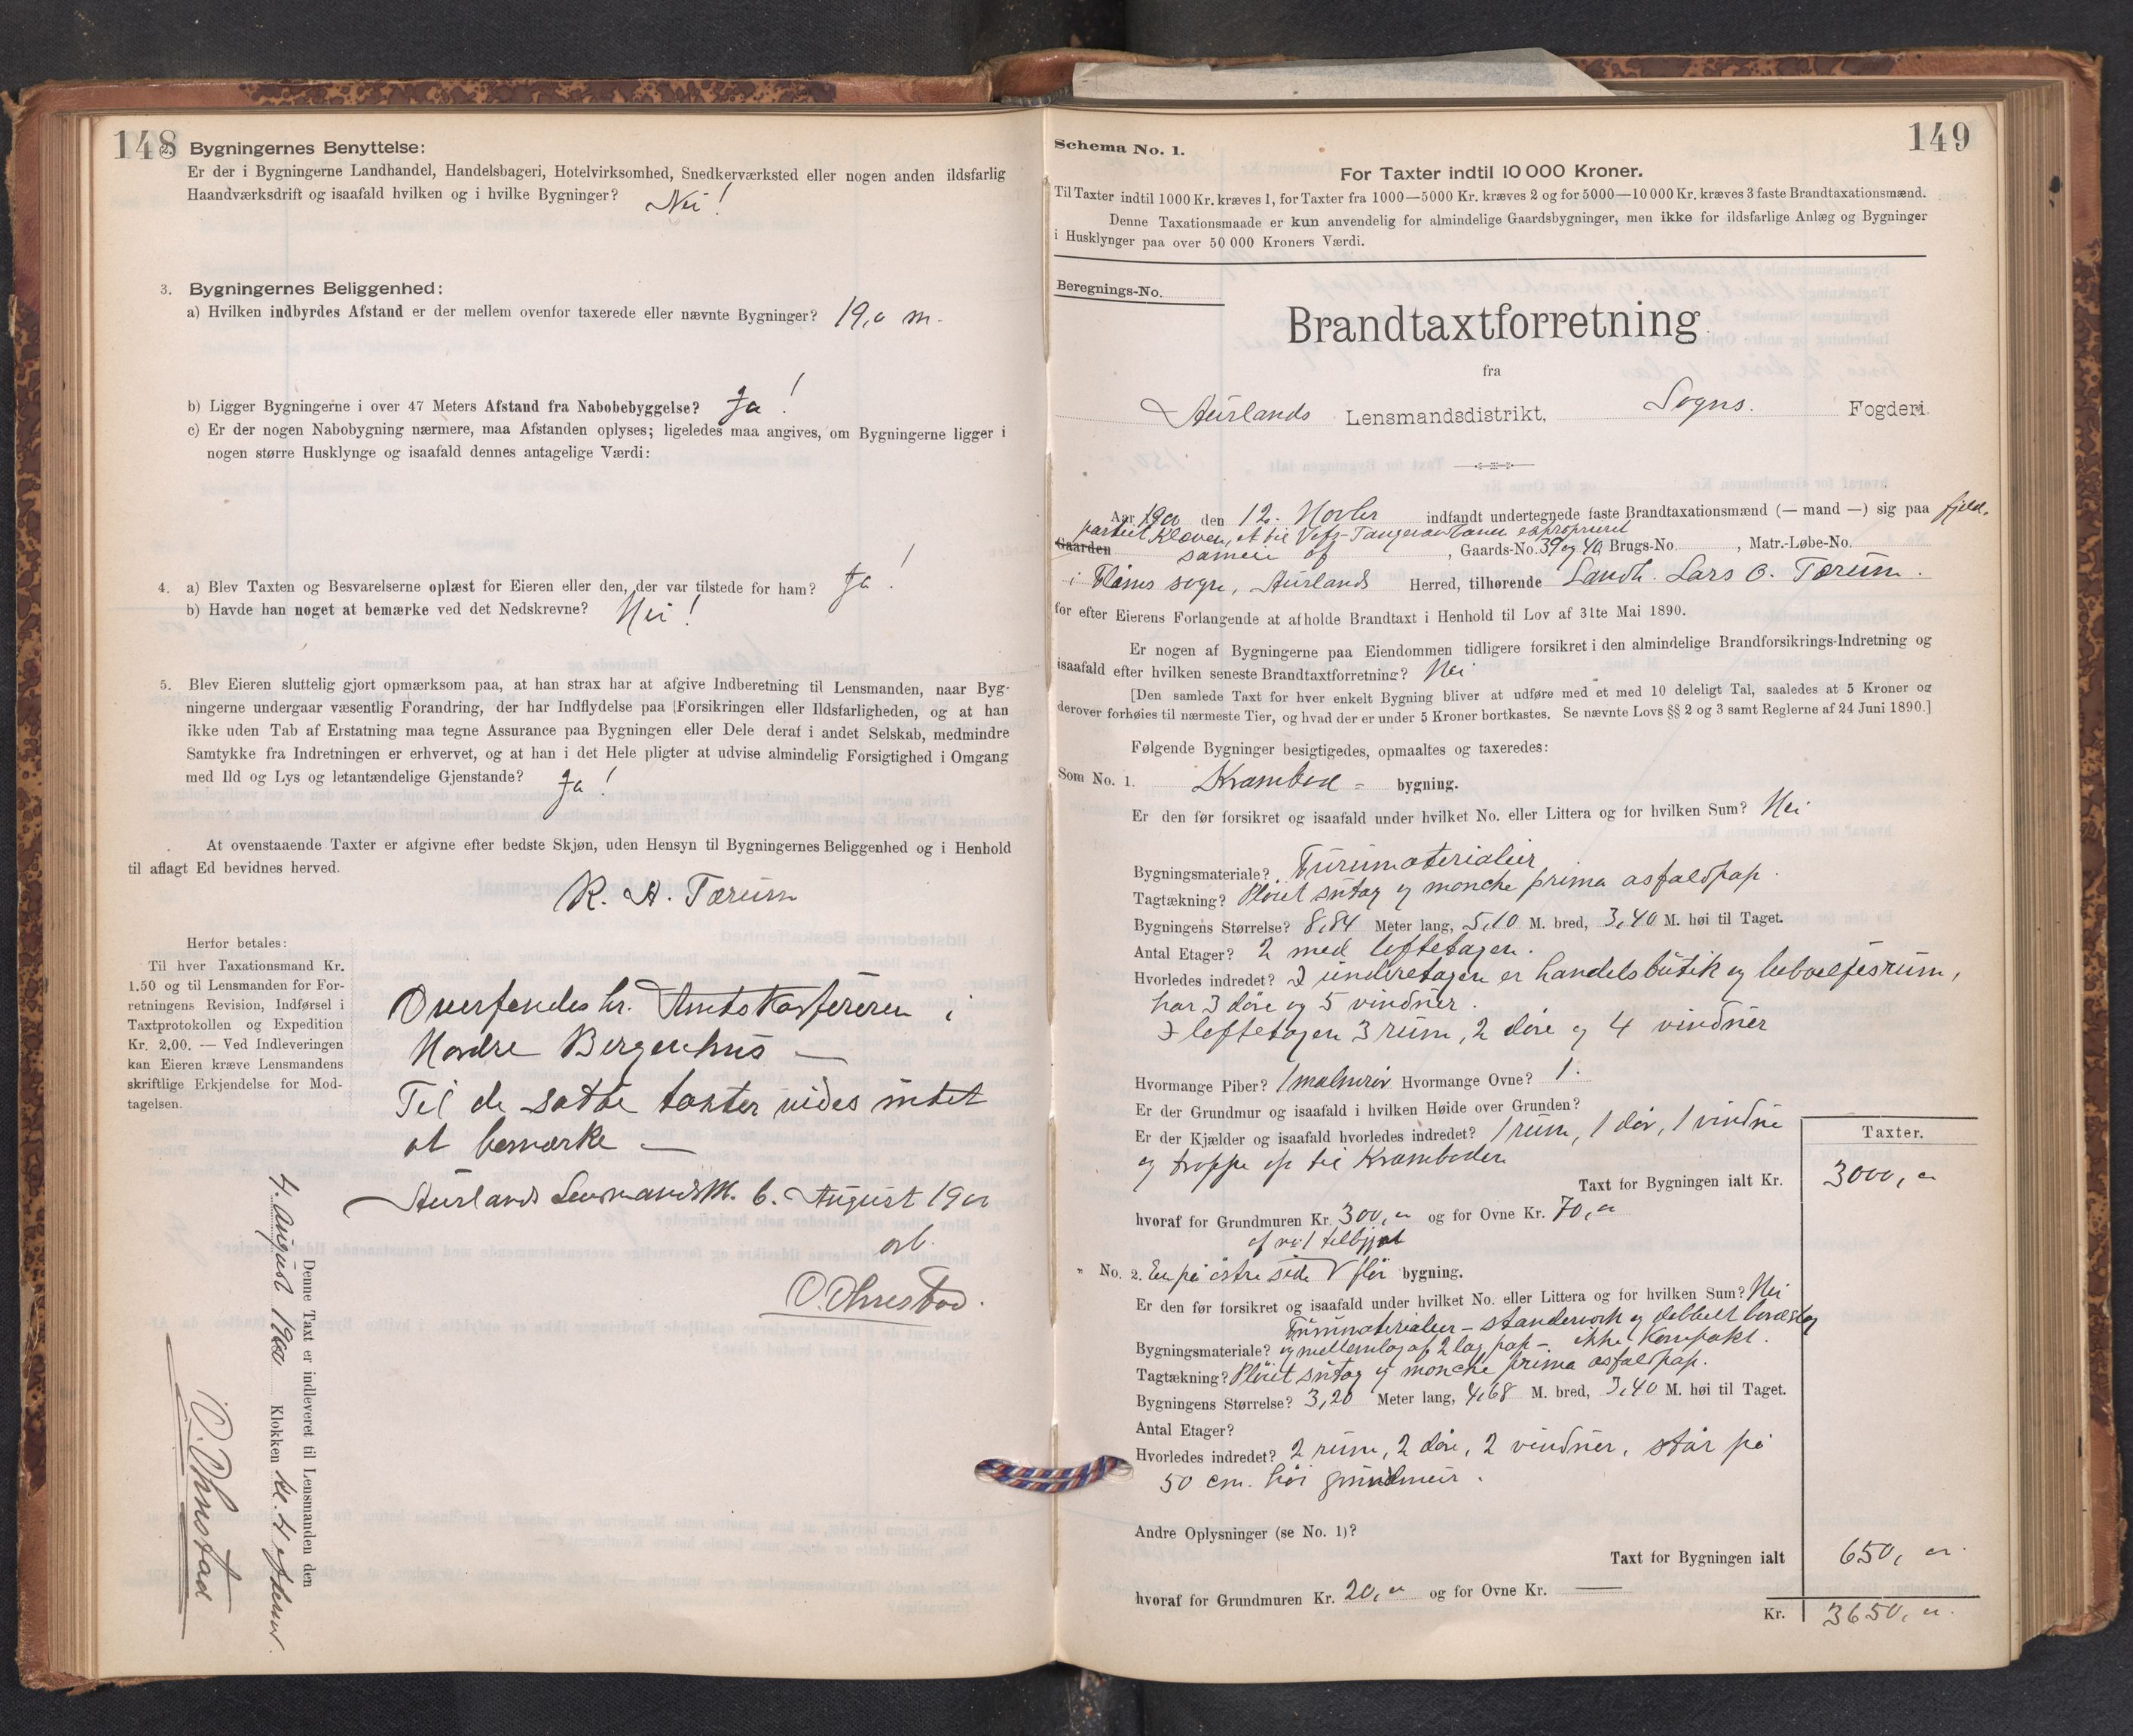 148
2. Bygningernes Benyttelse:
Er der i Bygningerne Landhandel, Handelsbageri, Hotelvirksomhed, Snedkerværksted eller nogen anden ildsfarlig
Haandværksdrift og isaafald hvilken og i hvilke Bygninger? Nei!
3. Bygningernes Beliggenhed:
a) Hvilken indbyrdes Afstand er der mellem ovenfor taxerede eller nævnte Bygninger? 19,0 m.
b) Ligger Bygningerne i over 47 Meters Afstand fra Nabobebyggelse? Ja!
c) Er der nogen Nabobygning nærmere, maa Afstanden oplyses; ligeledes maa angives, om Bygningerne ligger i
nogen større Husklynge og isaafald dennes antagelige Værdi:
4. a) Blev Taxten og Besvarelserne oplæst for Eieren eller den, der var tilstede for ham? Ja!
b) Havde han noget at bemærke ved det Nedskrevne? Nei!
5. Blev Eieren sluttelig gjort opmærksom paa, at han strax har at afgive Indberetning til Lensmanden, naar Byg-
ningerne undergaar væsentlig Forandring, der har Indflydelse paa Forsikringen eller Ildsfarligheden, og at han
ikke uden Tab af Erstatning maa tegne Assurance paa Bygningen eller Dele deraf i andet Selskab, medmindre
Samtykke fra Indretningen er erhvervet, og at han i det Hele pligter at udvise almindelig Forsigtighed i Omgang
med Ild og Lys og letantændelige Gjenstande? Ja!
At ovenstaaende Taxter er afgivne efter bedste Skjøn, uden Hensyn til Bygningernes Beliggenhed og i Henhold
til aflagt Ed bevidnes herved.
K. A. Tærum
Herfor betales:
Til hver Taxationsmand Kr.
1.50 og til Lensmanden for For-
retningens Revision, Indførsel i
Taxtprotokollen og Expedition
Kr. 2.00. — Ved Indleveringen
kan Eieren kræve Lensmandens
skriftlige Erkjendelse for Mod-
tagelsen.
Oversendes hr. Amtskassereren i
Nordre Bergenhus —
Til de satte taxter vides intet
at bemærke —
Aurlands Lensmandsk. 6. August 1900
arb.
O. Ohnstad.
Denne Taxt er indleveret til Lensmanden den
4. August 1900 Klokken kl. 4 efterm.
O. Ohnstad
149
Schema No. 1.
For Taxter indtil 10 000 Kroner.
Til Taxter indtil 1000 Kr. kræves 1, for Taxter fra 1000—5000 Kr. kræves 2 og for 5000—10 000 Kr. kræves 3 faste Brandtaxationsmænd.
Denne Taxationsmaade er kun anvendelig for almindelige Gaardsbygninger, men ikke for ildsfarlige Anlæg og Bygninger
i Husklynger paa over 50 000 Kroners Værdi.
Beregnings-No.
Brandtaxtforretning
fra
Aurlands Lensmandsdistrikt, Sogns. Fogderi
Aar 1900 den 12. Novbr indfandt undertegnede faste Brandtaxationsmænd (— mand —) sig paa fjeld-
partiet Kleven, et til Vefs-Tangevandbanen exproprieret
Gaarden sameie af , Gaards-No. 39 og 40 Brugs-No. , Matr.-Løbe-No.
i Flåms sogn, Aurlands Herred, tilhørende Landh. Lars O. Tærum.
for efter Eierens Forlangende at afholde Brandtaxt i Henhold til Lov af 31te Mai 1890.
Er nogen af Bygningerne paa Eiendommen tidligere forsikret i den almindelige Brandforsikrings-Indretning og
isaafald efter hvilken seneste Brandtaxtforretning? Nei
[Den samlede Taxt for hver enkelt Bygning bliver at udføre med et med 10 deleligt Tal, saaledes at 5 Kroner og
derover forhøies til nærmeste Tier, og hvad der er under 5 Kroner bortkastes. Se nævnte Lovs §§ 2 og 3 samt Reglerne af 24 Juni 1890.]
Følgende Bygninger besigtigedes, opmaaltes og taxeredes:
Som No. 1. Krambod- bygning.
Er den før forsikret og isaafald under hvilket No. eller Littera og for hvilken Sum? Nei
Bygningsmateriale? Furumaterialier
Tagtækning? Pløiet sutag og monche prima asfaltpap.
Bygningens Størrelse? 8,84 Meter lang, 5,10 M. bred, 3,40 M. høi til Taget.
Antal Etager? 2 med loftetagen.
Hvorledes indredet? I underetagen er handelsbutik og beboelsesrum,
har 3 døre og 5 vinduer.
I loftetagen 3 rum, 2 døre og 4 vinduer
Hvormange Piber? 1 Hvormange Ovne? 1.
Er der Grundmur og isaafald i hvilken Høide over Grunden?
Er der Kjælder og isaafald hvorledes indredet? 1 rum, 1 dør, 1 vindue
og trappe op til Kramboden
Taxter.
Taxt for Bygningen ialt Kr. 3000,00
hvoraf for Grundmuren Kr. 300,00 og for Ovne Kr. 70,00
af no 1 tilbygget
" No. 2. En på østre side fløi bygning.
Er den før forsikret og isaafald under hvilket No. eller Littera og for hvilken Sum? Nei
Furumaterialier – standerverk og dobbelt bordslag
Bygningsmateriale? og mellemlag af 2 lag pap – ikke kompakt.
Tagtækning? Pløiet sutag og monche prima asfaltpap.
Bygningens Størrelse? 3,20 Meter lang, 4,68 M. bred, 3,40 M. høi til Taget.
Antal Etager?
Hvorledes indredet? 2 rum, 2 døre, 2 vinduer, står på
50 cm. høi grundmur.
Andre Oplysninger (se No. 1)?
Taxt for Bygningen ialt 650,00
hvoraf for Grundmuren Kr. 20,00 og for Ovne Kr. —
Kr. 3650,00